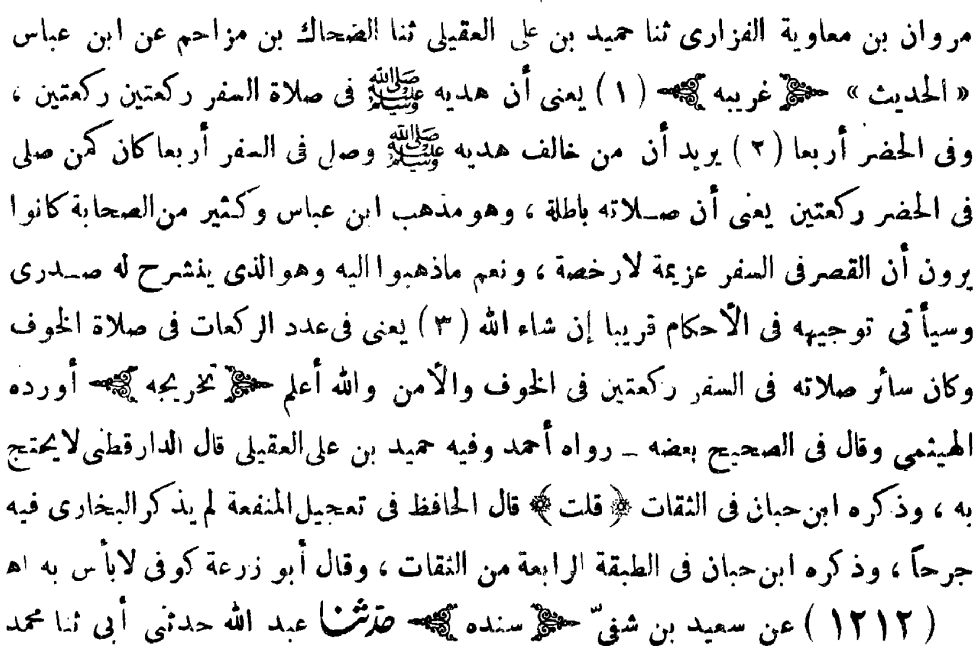 مروان بن معاوية الفزارى ثنا حميد بن على العقيلى ثنا الضحاك بن مزاحم عن ابن عباس
« الحديث » غريبه (١) يعنى أن هديه ﷺ فى صلاة السفر ركعتين ركعتين ،
وفى الحضر أربعا (٢) يريد أن من خالف هديه ﷺ وصلى فى السفر أربعا كان كمن صلى
فى الحضر ركعتين يعنى أن صلاته باطلة ، وهو مذهب ابن عباس وكثير من الصحابة كانوا
يرون أن القصر فى السفر عزيمة لا رخصة ، ونعم ماذهبوا اليه وهو الذى ينشرح له صدرى
وسيأتى توجيهه فى الأحكام قريبا إن شاء الله (٣) يعنى فى عدد الركعات فى صلاة الخوف
وكان سائر صلاته فى السفر ركعتين فى الخوف والأمن والله أعلم تخريجه أورده
الهيثمى وقال فى الصحيح بعضه ــ رواه أحمد وفيه حميد بن على العقيلى قال الدارقطنى لا يحتج
به ، وذكره ابن حبان فى الثقات ﴿ قلت ﴾ قال الحافظ فى تعجيل المنفعة لم يذكر البخارى فيه
جرحاً ، وذكره ابن حبان فى الطبقة الرابعة من الثقات ، وقال أبو زرعة كوفى لابأس به اھ
(١٢١٢) عن سعيد بن شفىّ سنده حدثنا عبد الله حدثنى أبى ثنا محمد